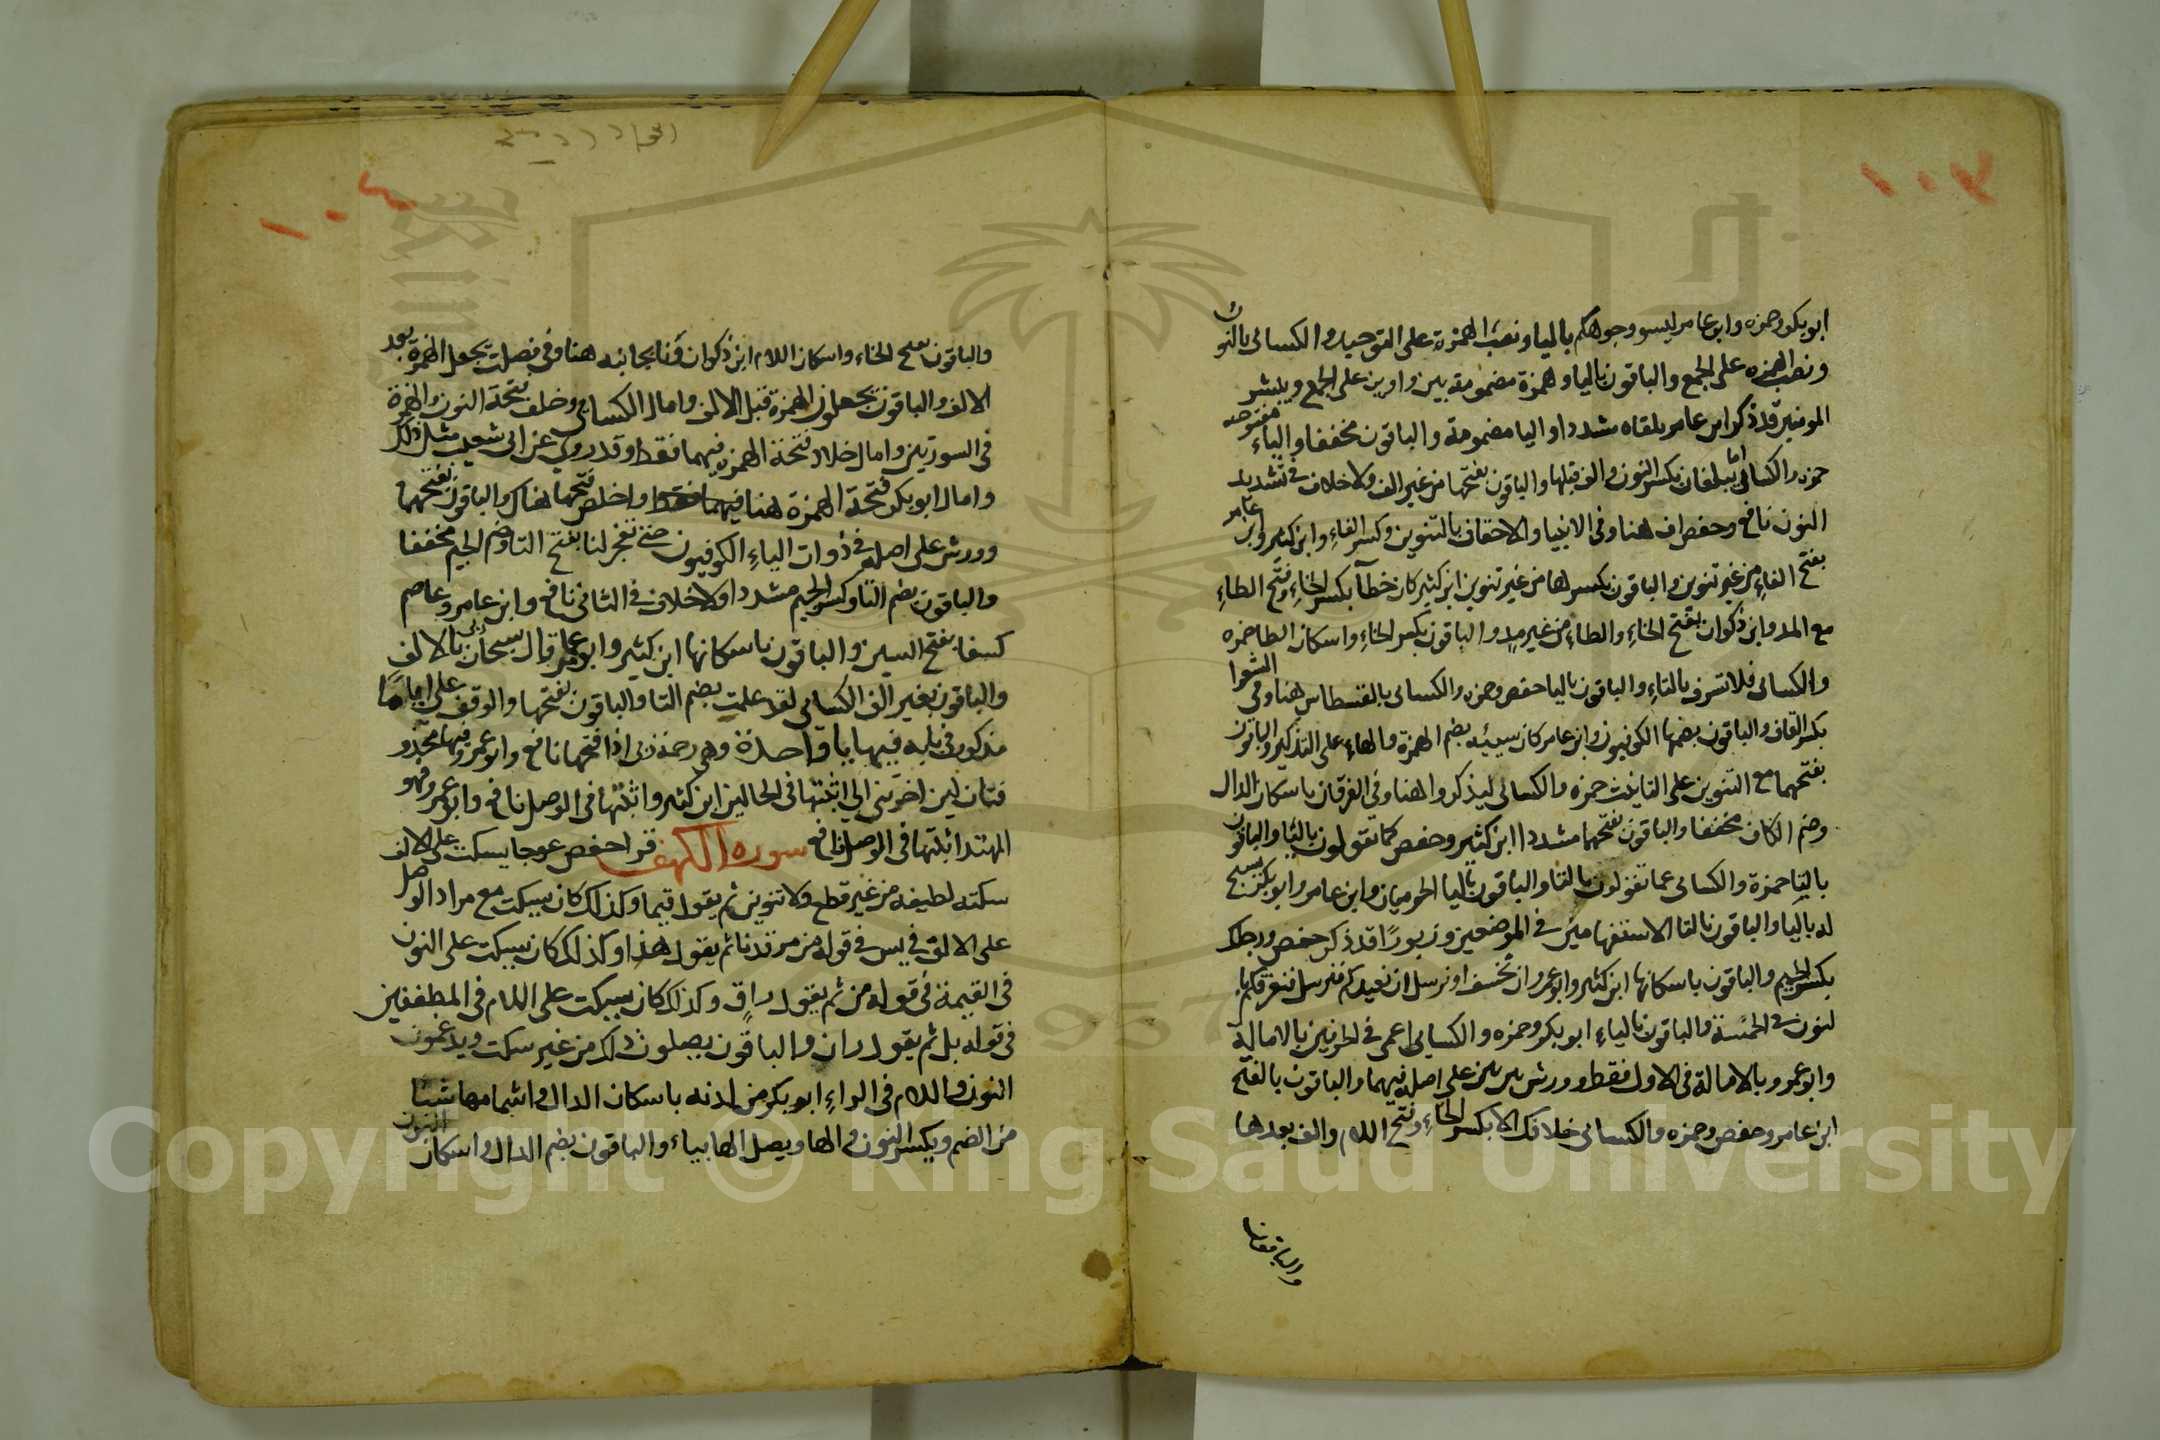 ١٠٣
ابو بكر وحمزه وابن عامر ليسوء وجوهكم باليا ونصب الهمزة على التوحيد والكسائى بالنون
ونصب الهمزه على الجمع والباقون باليا وهمزة مضمومة بين واوين على الجمع ويبشر
المومنين قد ذكر ابن عامر يلقاه مشددا واليا مضمومة والباقون مخففا والياء مفتوحه
حمزه والكسائى اما يبلغان بكسر النون والف قبلها والباقون بفتحها من غير الف ولا خلاف فى تشديد
النون نافع وحفص اف هنا وفى الانبيا والاحقاف بالتنوين وكسر الفاء وابن كثير وابن عامر
بفتح الفاء من غير تنوين والباقون بكسرها من غير تنوين ابن كثير كان خطآ بكسر الخاء وفتح الطاء
مع المد وابن ذكوان بفتح الخاء والطاء من غير مد والباقون بكسر الخاء واسكان الطا حمزه
والكسائى فلا تسرف بالتاء والباقون باليا حفص وحمزه والكسائى بالقسطاس هنا وفى الشعرا
بكسر القاف والباقون بضمها الكوفيون وابن عامر كان سيئه بضم الهمزة والهاء على التذكير والباقون
بفتحهما مع التنوين على التانيث حمزه والكسائى ليذكروا هنا وفى الفرقان باسكان الدال
وضم الكاف مخففا والباقون بفتحهما مشددا ابن كثير وحفص كما تقولون باليا والباقون
بالتا حمزة والكسائى عما تقولون بالتا والباقون باليا الحرميان وابن عامر وابو بكر يسبح
له باليا والباقون بالتا الاستفهامين فى الموضعين وزبورًا قد ذكر حفص ورجلك
بكسر الجيم والباقون باسكانها ابن كثير وابو عمرو ان نخسف او نرسل ان نعيدكم فنرسل فنغرقكم با
لنون فى الخمسة والباقون بالياء ابو بكر وحمزه والكسائى اعمى فى الحرفين بالامالة
وابو عمرو بالامالة فى الاول فقط وورش بين بين على اصله فيهما والباقون بالفتح
ابن عامر وحفص وحمزه والكسائى خلافك الا بكسر الخاء وفتح اللام والف بعدها
والباقون
١٠٤
والباقون بفتح الخاء واسكان اللام ابن ذكوان ونا بجانبه هنا وفى فصلت بجعل الهمزة بعد
الالف والباقون يجعلون الهمزة قبل الالف وامال الكسائى وخلف فتحة النون والهمزة
فى السورتين وامال خلاد فتحة الهمزه فيهما فقط وقد روى عن ابى شعيب مثل ذلك
وامال ابو بكر فتحة الهمزة هنا فيهما فقط واخلص فتحها هناك والباقون بفتحهما
وورش على اصله فى ذوات الياء الكوفيون حتى تفجر لنا بفتح التا وضم الجيم مخففا
والباقون بضم التا وكسر الجيم مشددا ولا خلاف فى الثانى نافع وابن عامر وعاصم
كسفا بفتح السين والباقون باسكانها ابن كثير وابن عامر قال سبحان ربى بالالف
والباقون بغير الف الكسائى لقد علمت بضم التا والباقون بفتحها والوقف على اياما
مذكور فى بابه فيها يا واحدة وهى رحمة ربى اذا فتحها نافع وابو عمرو وفيها محذو
فتان لين اخرتنى الى اثبتها فى الحالين ابن كثير واثبتها فى الوصل نافع وابو عمرو فهو
المهتد اثبتها فى الوصل نافع سورة الكهف قرا حفص عوجا يسكت على الالف
سكته لطيفه من غير قطع ولا تنوين ثم يقول قيما وكذلك كان يسكت مع مراد الوصل
على الالف فى يس فى قوله من مرقدنا ثم يقول هذا وكذلك كان يسكت على النون
فى القيمة فى قوله من ثم يقول راق وكذلك كان يسكت على اللام فى المطففين
فى قوله بل ثم يقول ران والباقون يصلون ذلك من غير سكت ويدغمون
النون واللام فى الراء ابو بكر من لدنه باسكان الدال واشمامها شيئا
من الضم ويكسر النون والها ويصل الها بياء والباقون بضم الدال واسكان النون
Copyright © King Saud University
1957